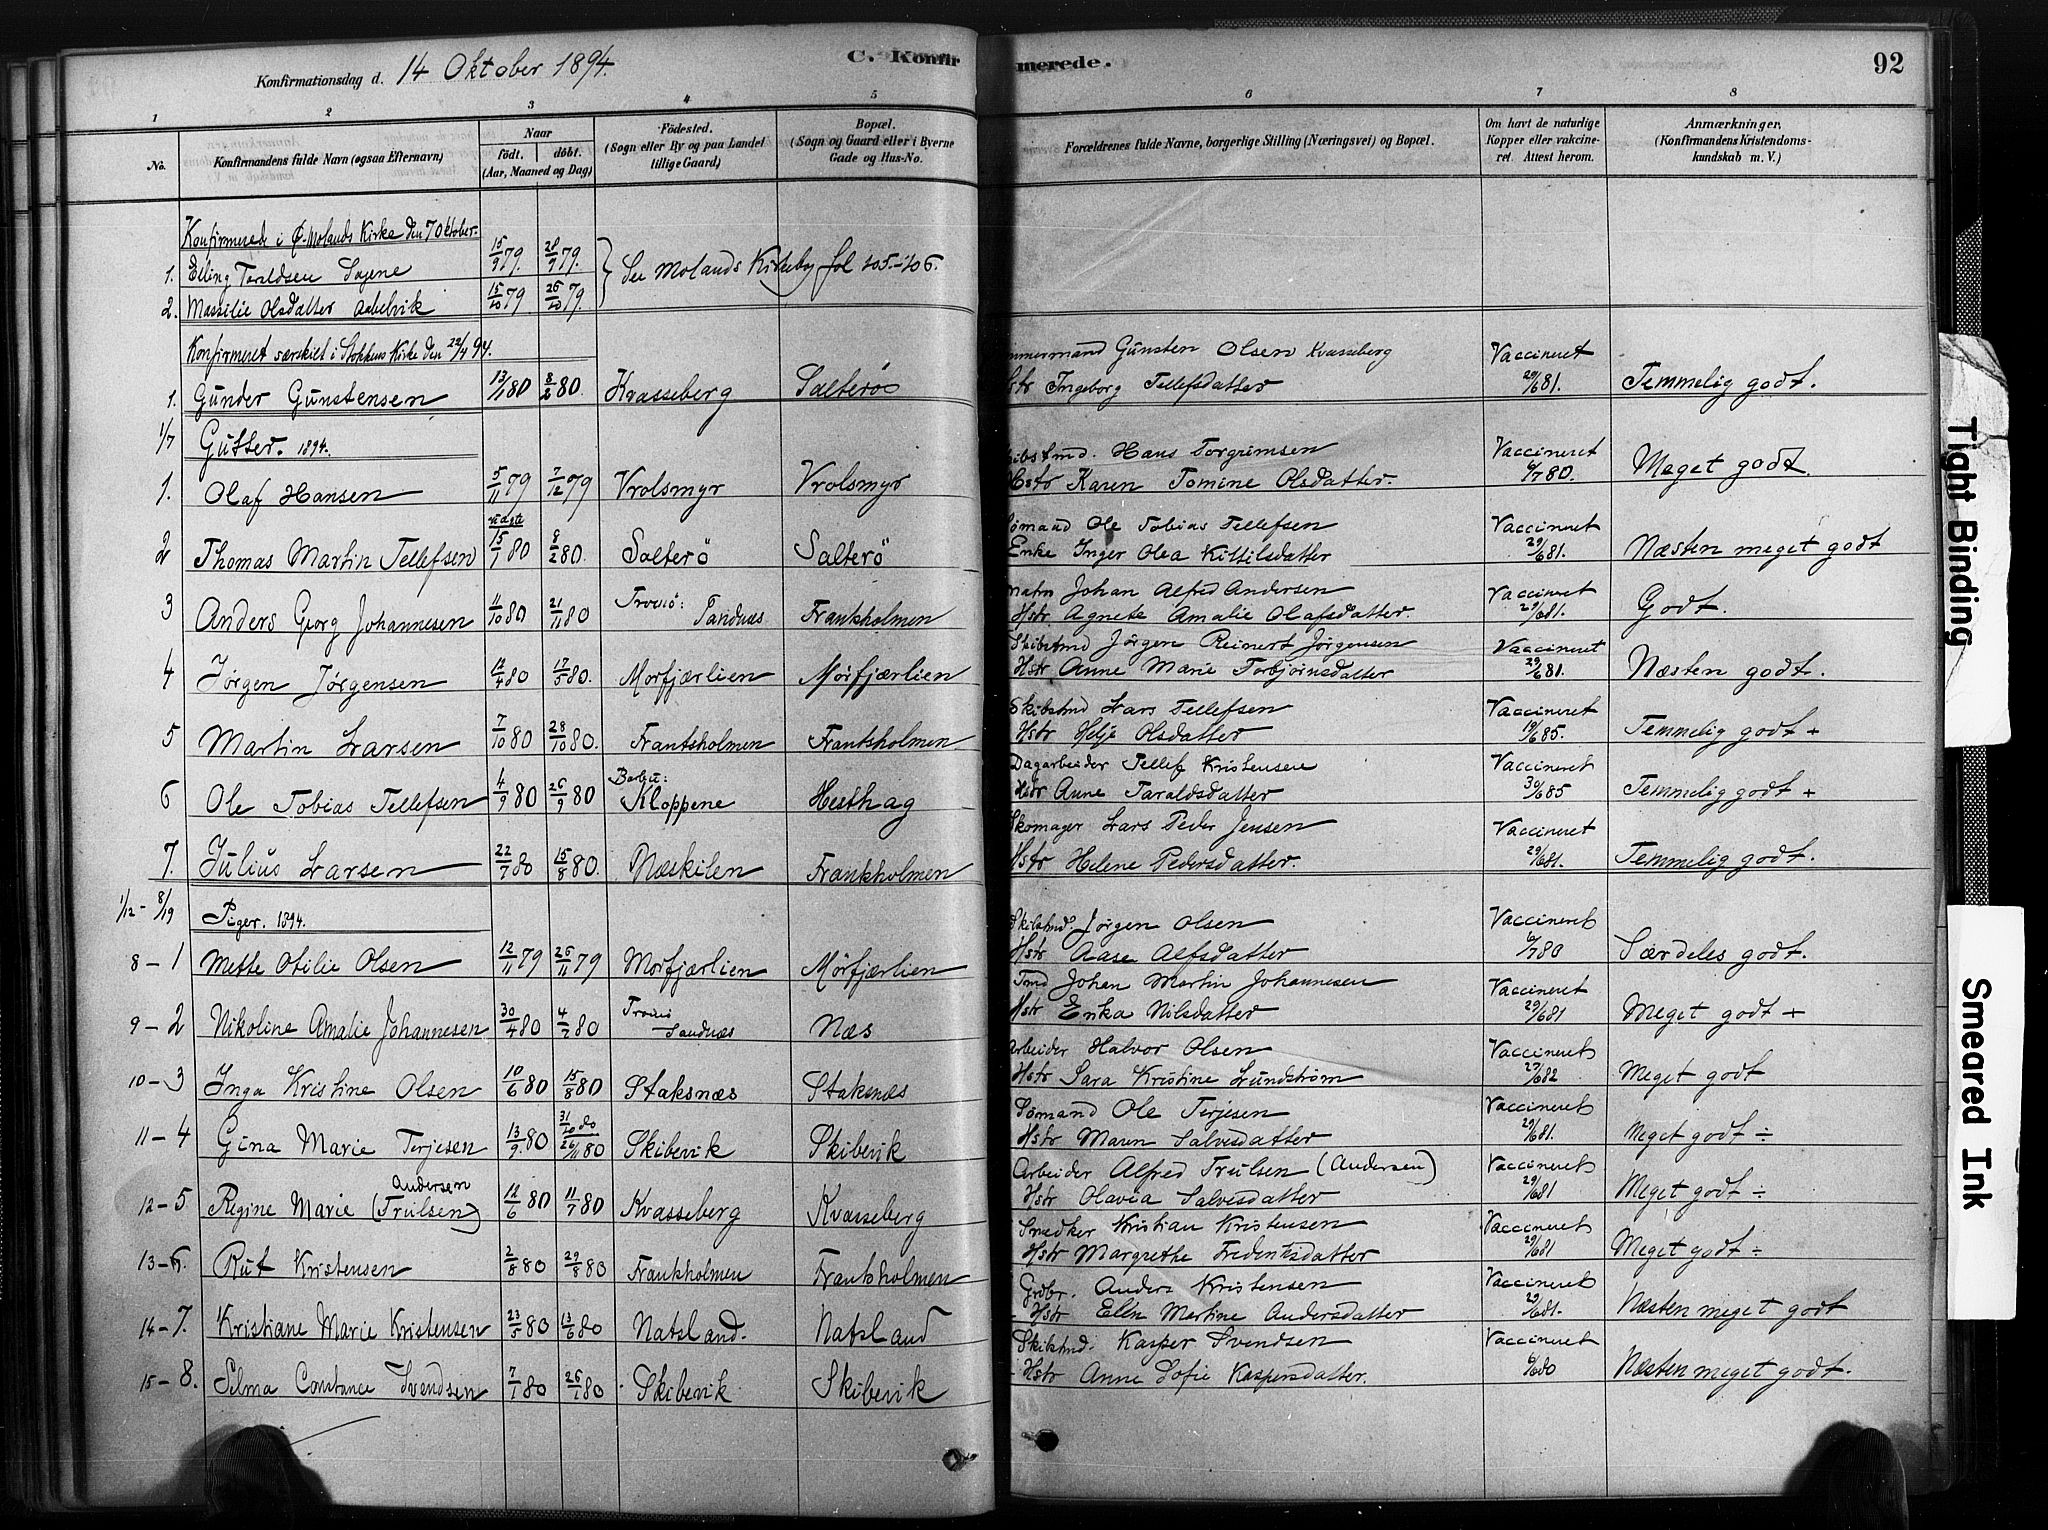 Konfirmationsdag d. 14 Oktober 1894. C. Konfir merede. 92
1 2 3 4 5 6 7 8
No. Konfirmandens fulde Navn (ogsaa Efternavn) Naar født. døbt. (Aar, Maaned og Dag) Fødested. (Sogn eller By og paa Landet tillige Gaard) Bopæl. (Sogn og Gaard eller i Byerne Gade og Hus-No. Forældrenes fulde Navne, borgerlige Stilling (Næringsvei) og Bopæl. Om havt de naturlige Kopper eller vakcineret. Attest herom. Anmærkninger. (Konfirmandens Kristendomskundskab m. V.)
Konfirmerede i Ø-Molands Kirke den 7 Oktober.
1. Elling Taraldsen 15/9 79. 28/9 79. } See Molands Kirkebog fol 105-106.
2. Massilie Olsdatter 15/10 79 26/10 79.
Konfirmeret særskilt i Stokkens Kirke den 22/4 94.
Gunsten Olsen Kvasseberg Vaccineret
1. Gunder Gunstensen 13/1 80 8/2 80. Kvasseberg Salterøe Ingeborg Tellefsdatter 29/6 81. Temmelig godt.
1/7 Gutter. 1894.
Hans Torgrimsen Vaccineret
1. Olaf Hansen 5/11 79 7/12 79 Vrolsmyr Vrolsmyr Hstr Karen Tomine Olsdatter. 6/7 80. Meget godt
Sømand Ole Tobias Tellefsen Vaccineret
2 Thomas Martin Tellefsen 15/1 80 8/2 80. Salterö Salterö Enke Inger Olea Kittilsdatter 29/6 81. Næsten meget godt
Matro Johan Alfred Andersen Vaccineret
3 Anders Georg Johannesen 11/10 80 21/11 80 Tromö: Sandnæs Frankholmen Hstr Agnete Amalie Olafsdatter. 29/6 81. Godt.
Skibstmd Jørgen Reinert Jørgensen Vaccineret
4 Jørgen Jørgensen 12/4 80 17/5 80. Morfjærlien Mörfjærlien Hstr Anne Marie Torbjørnsdatter 29/6 81. Næsten godt.
Skibstmd Lars Tellefsen Vaccineret
5 Martin Larsen 7/10 80 28/10 80. Frantsholmen Frantsholmen Hstr Helje Olsdatter 19/6 85. Temmelig godt +
Dagarbeider Tellef Kristensen Vaccineret
6 Ole Tobias Tellefsen 4/9 80 26/9 80 Barbu: Kloppene Hesthag Hstr Anne Taraldsdatter 30/6 85 Temmelig godt +
Skomager Lars Peder Jensen Vaccineret
7. Julius Larsen 22/7 80 15/8 80. Næskilen Frankholmen Hstr Helene Pedersdatter. 29/6 81. Temmelig godt.
1/12 - 8/19 Piger. 1894.
Skibstmd. Jørgen Olsen Vaccineret
8 - 1 Mette Otilie Olsen 12/11 79 26/11 79 Morfjærlien Mörfjærlien Hstr Aase Alfsdatter 6/7 80 Særdeles godt.
Tmd Johan Martin Johannesen Vaccineret
9 - 2 Nikoline Amalie Johannesen 30/4 80 4/7 80 Tromö Sandnæs Næs Hstr Erika Nilsdatter 29/6 81 Meget godt +
Arbeider Halvor Olsen Vaccineret
10 - 3 Inga Kristine Olsen 10/6 80 15/8 80 Staksnæs Staksnæs Hstr Sara Kristine Lundstrøm 27/6 82 Meget godt
Sømand Ole Terjesen Vaccineret
11 - 4 Gina Marie Terjesen 13/9 80 31/10 80 26/11 80 Skibevik Skibevik Hstr Maren Salvesdatter 29/6 81. Meget godt ÷
Arbeider Alfred Trulsen (Andersen) Vaccineret
12 - 5 Regine Marie (Trulsen) Andersen 12/6 80 11/7 80 Kvasseberg Kvasseberg Hstr Olavia Salvesdatter 29/6 81 Meget godt ÷
Snedker Kristian Kristensen Vaccineret
13 - 6. Rut Kristensen 2/8 80 29/8 80 Frankholmen Frantsholmen Hstr Margrethe Fredriksdatter 29/6 81 Meget godt ÷
Grdbr. Anders Kristensen Vaccineret
14 - 7. Kristiane Marie Kristensen 23/5 80 13/6 80 Natsland. Natsland Hstr Ellen Martine Andersdatter 29/6 81. Næsten meget godt
Skibstmd. Kasper Svendsen Vaccineret
15 - 8. Selma Constance Svendsen 7/1 80 26/1 80 Skibevik Skibevik Hstr Anne Sofie Kaspersdatter. Næsten meget godt.
Tight Binding
Smeared Ink